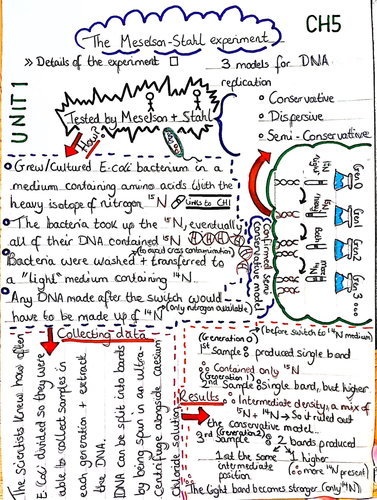 The Meselson-Stahl experiment
CH5
UNIT 1
» Details of the experiment
3 models for DNA
replication
Conservative
Dispersive
Semi-Conservative
Tested by Meselson + Stahl
How?
Grew/Cultured E-Coli bacterium in a
medium containing amino acids with the
heavy isotope of nitrogen ¹⁵N
Links to CH1
The bacteria took up the ¹⁵N, eventually
all of their DNA contained ¹⁵N
(to avoid cross contamination)
Bacteria were washed + transferred to
a "light" medium containing ¹⁴N.
Any DNA made after the switch would
have to be made up of ¹⁴N
(only nitrogen available)
Confirmed semi
conservative model
Gen 0
Gen 1
Gen 2
Gen 3
Collecting data
The scientists knew how often
E Coli divided so they were
able to collect samples in
each generation + extract
the DNA.
DNA can be split into bands
by being spun in an ultra-
centrifuge alongside caesium
Chloride solution
Results
(Generation 0) (before switch to ¹⁴N medium)
1st Sample: produced single band
Contained only ¹⁵N
(Generation 1)
2nd Sample: Single band, but higher
Intermediate density, a mix of
¹⁵N + ¹⁴N → So it ruled out
the Conservative model..
3rd (Generation 2)
Sample
2 bands produced
1 at the same
intermediate
position
1 higher
(more ¹⁴N present)
The light band becomes stronger (only ¹⁴N)